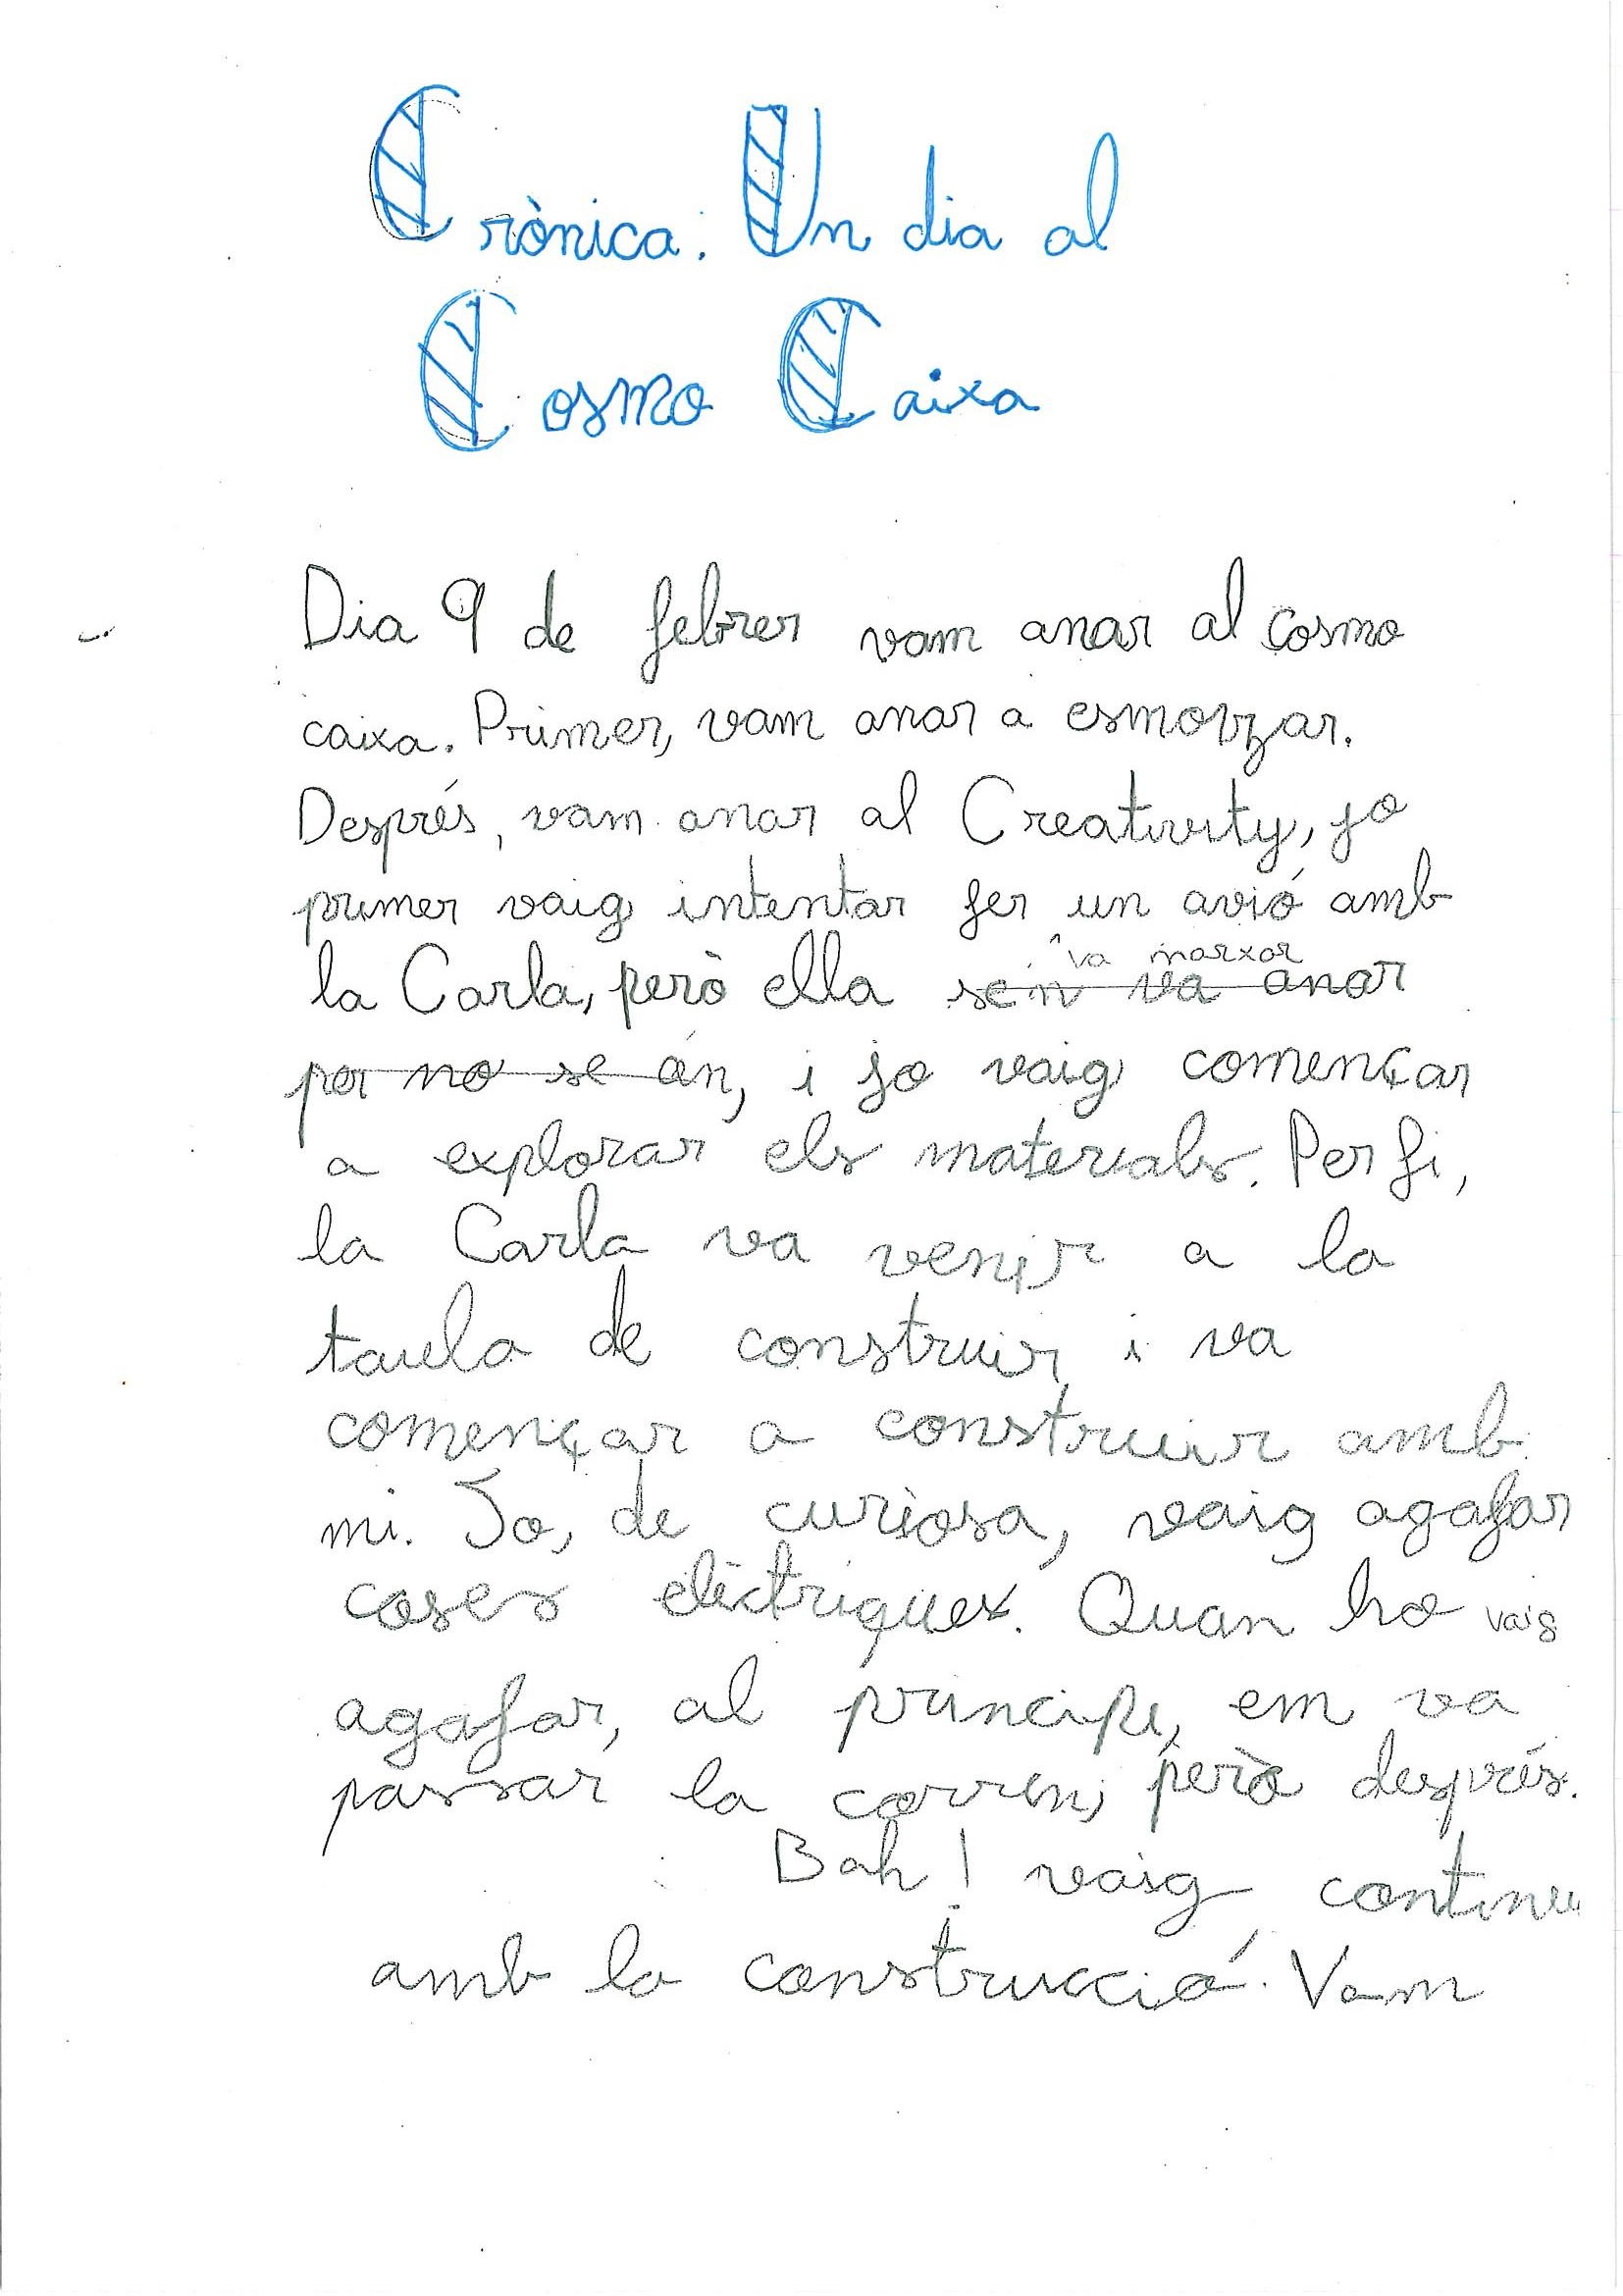 Crònica: Un dia al
Cosmo Caixa
Dia 9 de febrer vam anar al cosmo
caixa. Primer, vam anar a esmorzar.
Després, vam anar al Creativity, jo
primer vaig intentar fer un avió amb
va marxar
la Carla, però ella se'n va anar
per no se ón, i jo vaig començar
a explorar els materials. Per fi,
la Carla va venir a la
taula de construir i va
començar a construir amb
mi. Jo, de curiosa, vaig agafar
coses elèctriques. Quan ho vaig
agafar, al principi, em va
passar la corren, però després.
Bah! vaig continu
amb la construcció. Vam